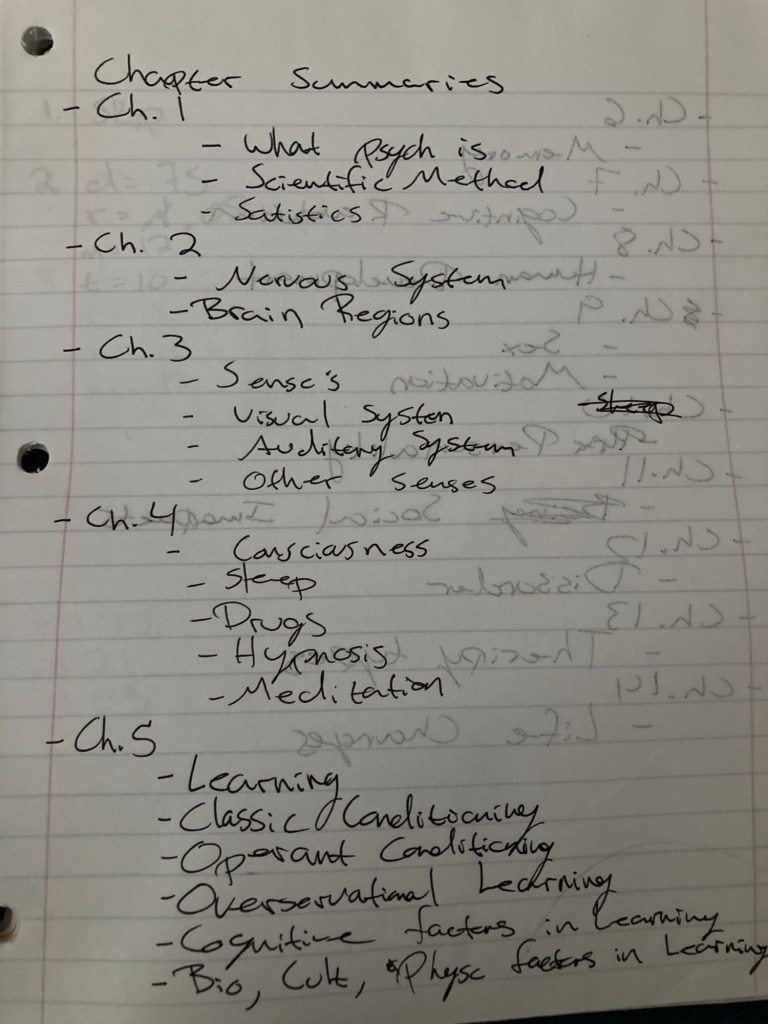 Chapter Summaries
- Ch. 1
- What psych is
- Scientific Method
- Satistics
- Ch. 2
- Nervous System
- Brain Regions
- Ch. 3
- Sense's
- Visual System
- Auditory System
- Other senses
- Ch. 4
- Consciasness
- Sleep
- Drugs
- Hypnosis
- Meditation
- Ch. 5
- Learning
- Classic Conditioning
- Operant Conditioning
- Overservational Learning
- Cognitive factors in learning
- Bio, Cult, Physc factors in Learning